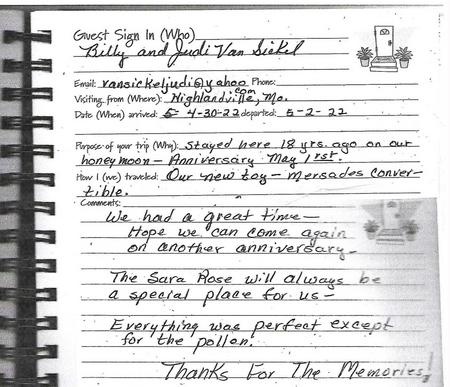 Guest Sign In (Who)
Billy and Judi Van Sickel
Email: vansickeljudi@yahoo.com Phone:
Visiting from (Where): Highlandville, Mo.
Date (When) arrived: 5 4-30-22 departed: 5-2-22
Purpose of your trip (Why): Stayed here 18 yrs. ago on our
honeymoon - Anniversary May 1rst.
How I (we) traveled: Our new toy - Mersades conver-
tible.
Comments:
We had a great time-
Hope we can come again
on another anniversary-
The Sara Rose will always be
a special place for us-
Everything was perfect except
for the pollen!
Thanks For The Memories!